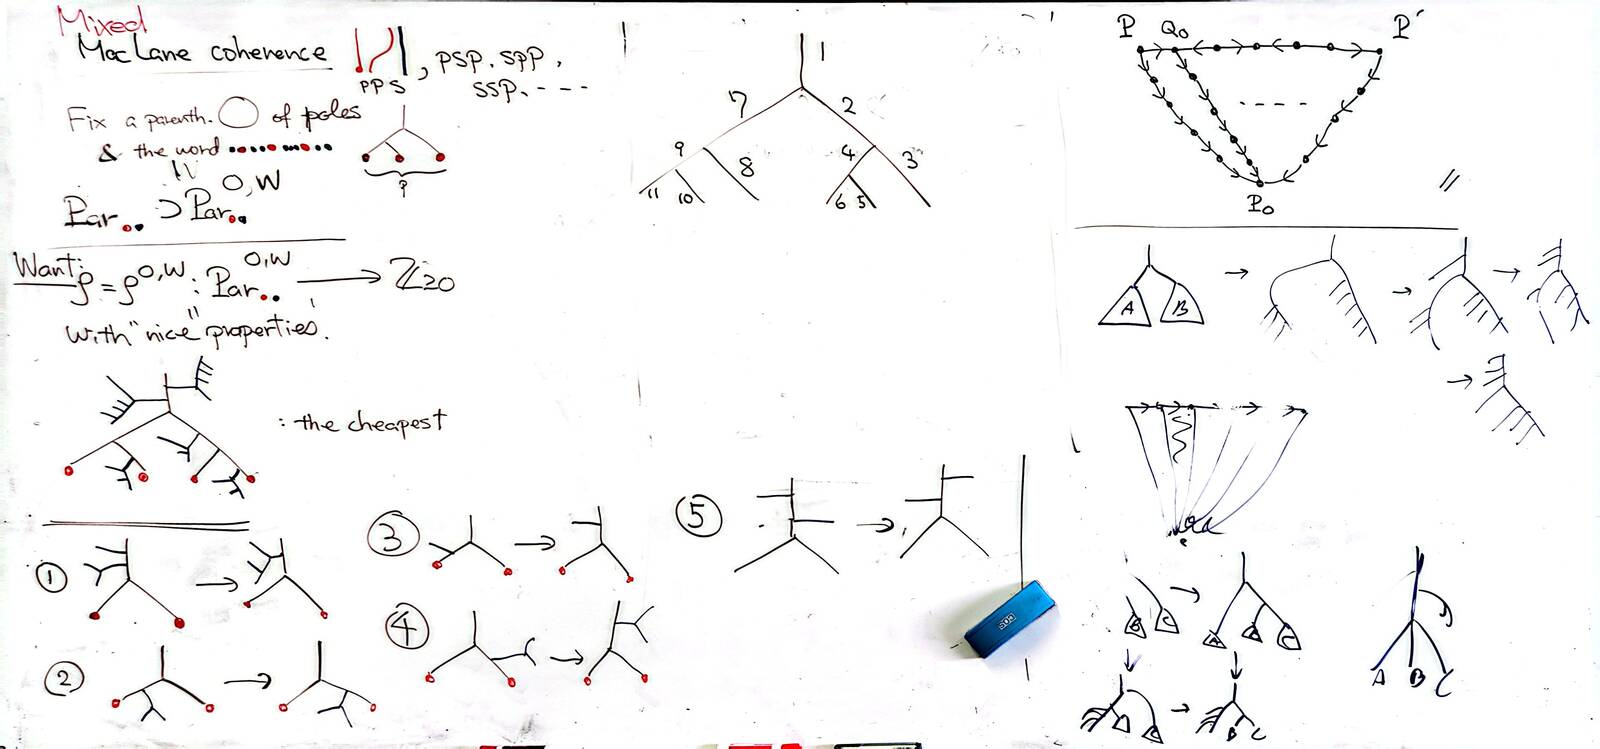 Mixed
MacLane coherence
PPS
, PSP, SPP,
SSP, ----
Fix a parenth. of poles
& the word
Par.. ⊃ Par.. O,W
?
Want: ρ = ρ^O,W : Par.. O,W → ℤ≥0
with "nice" properties.
: the cheapest
①
②
③
④
⑤
1
7
2
9
8
4
3
11
10
6
5
P
Q0
P'
P0
//
A
B
B
C
A
B
C
A
B
C